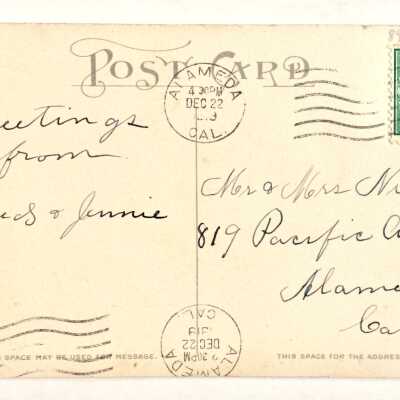 POST CARD
ALAMEDA
4 30PM
DEC 22
CAL.
eetings
from
& Jennie
Mr & Mrs Ni
819 Pacific A
Alame
Ca
ALAMEDA
30PM
DEC 22
CAL.
SPACE MAY BE USED FOR MESSAGE.
THIS SPACE FOR THE ADDRESS